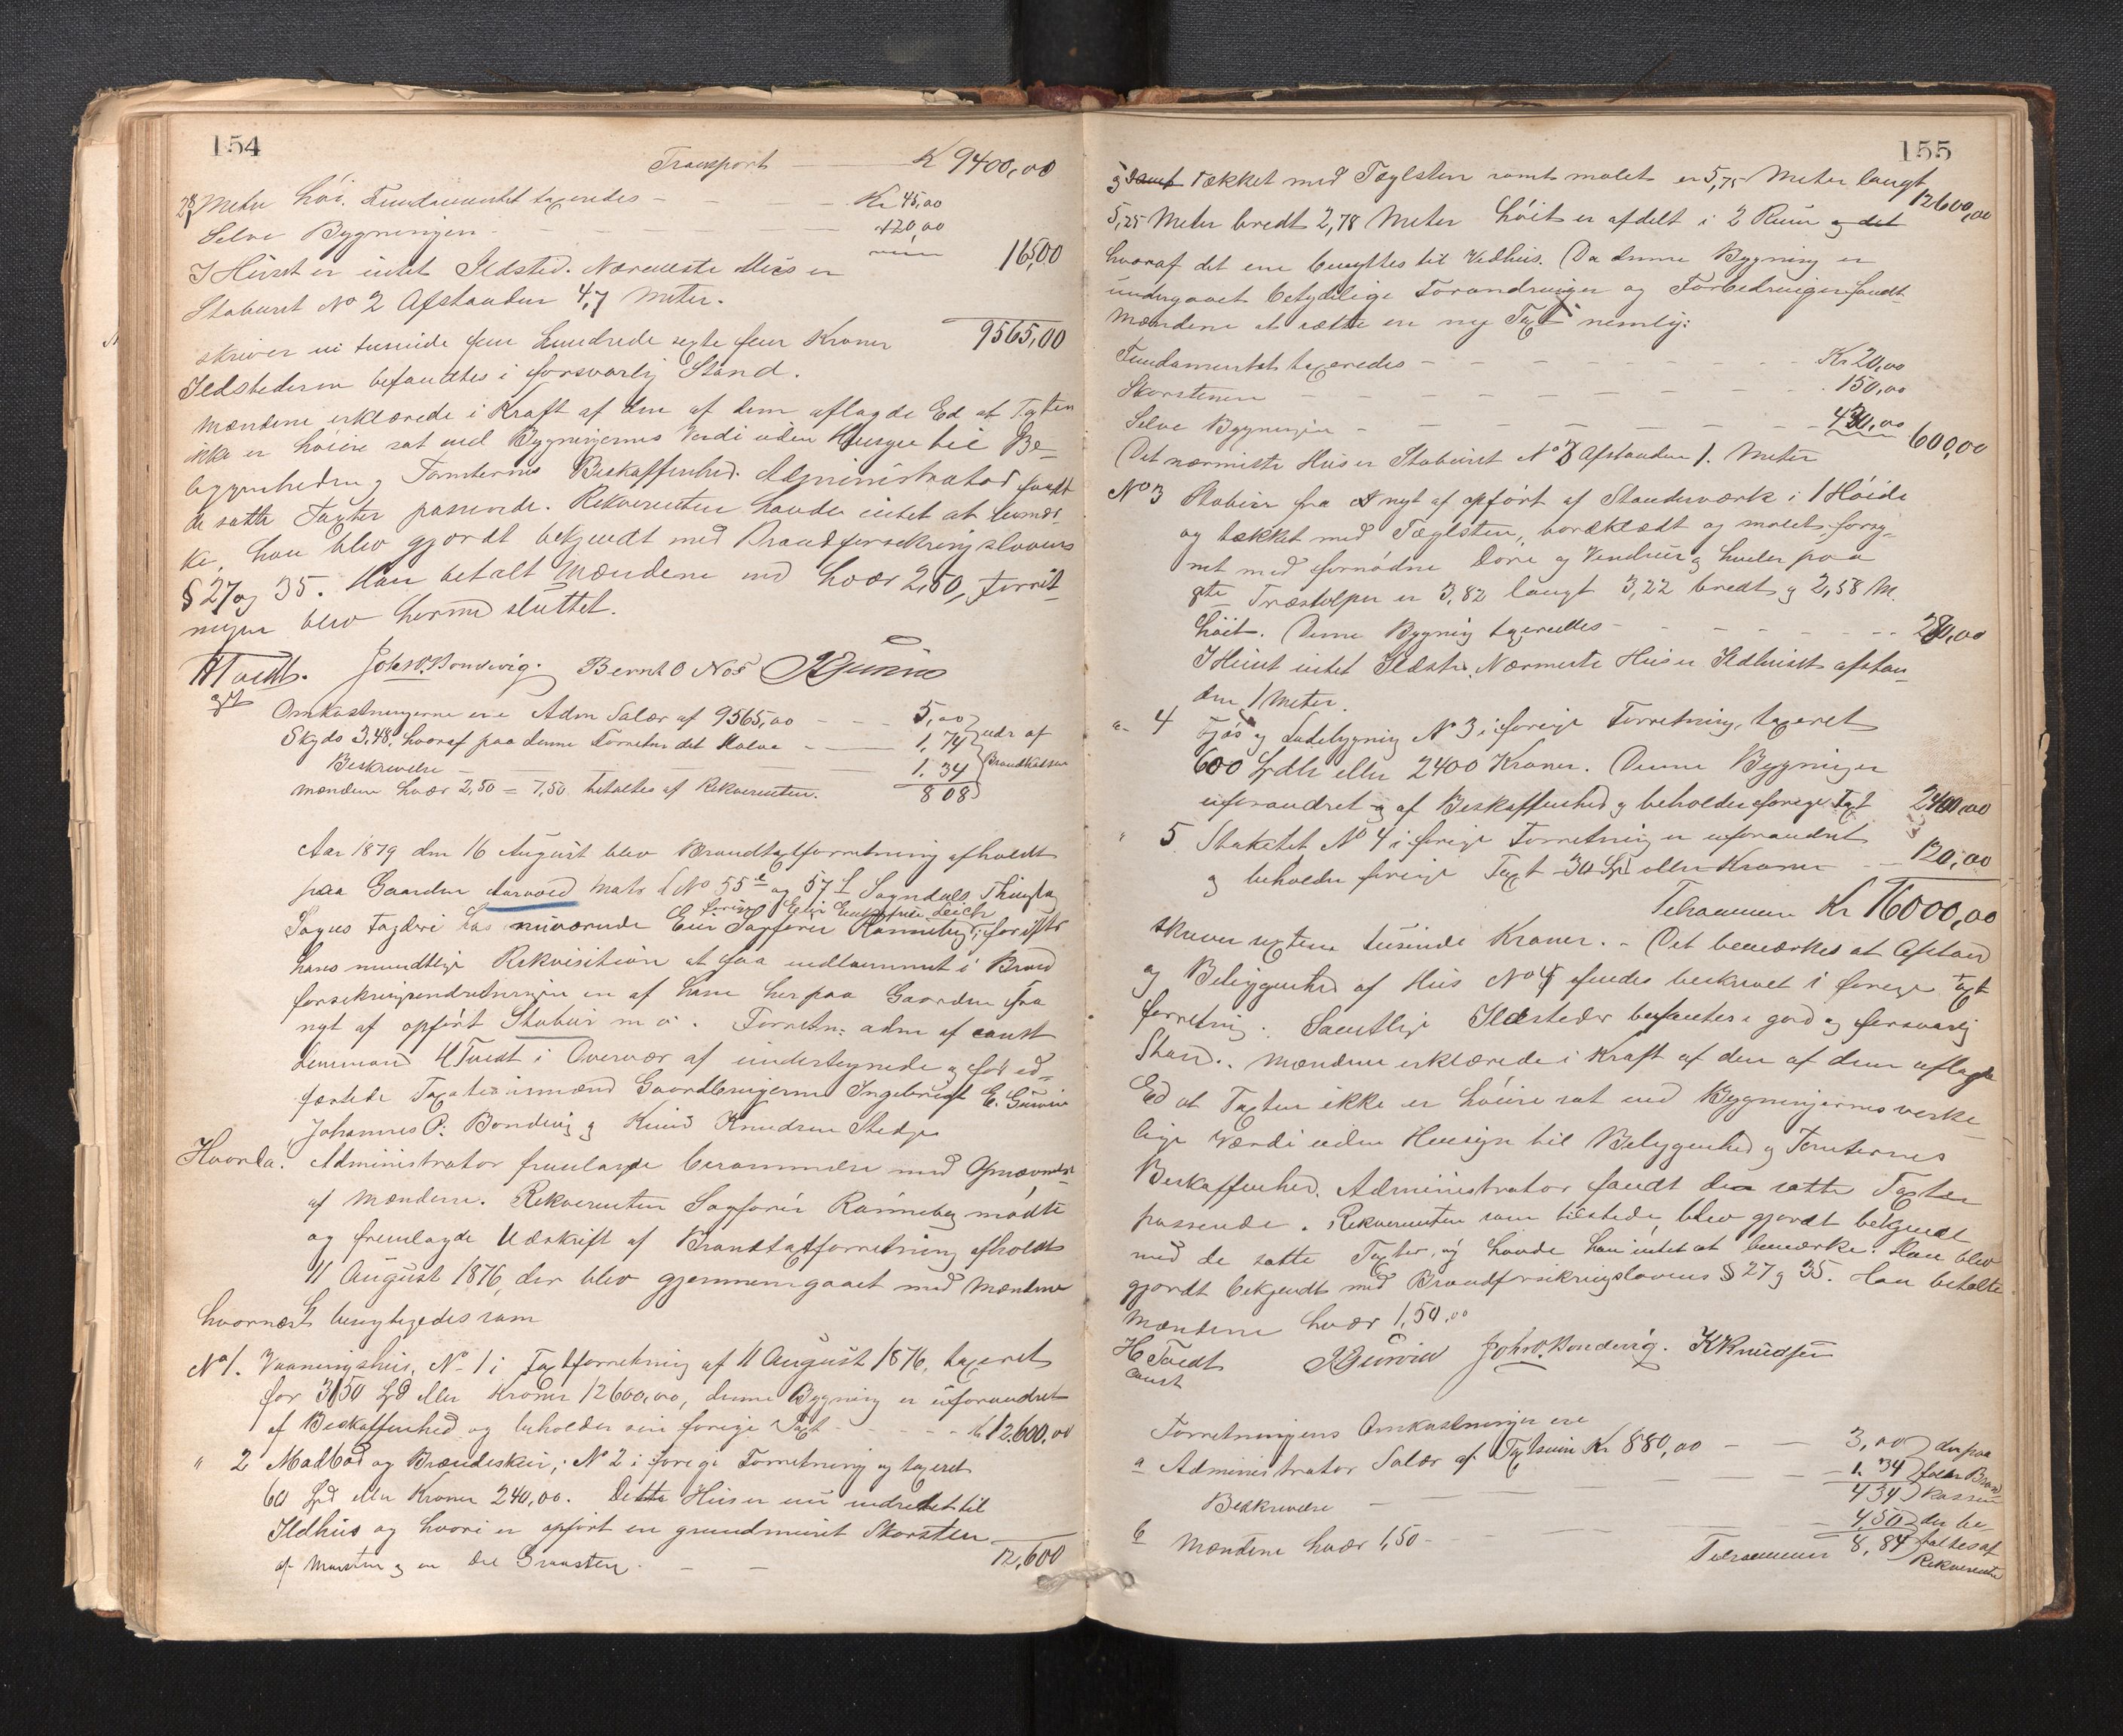 154
Transport — K 9400,00
2,8 Meter høi. Fundamentet taxeredes - - - Kr 45,00
Selve Bygningen - - - 120,00
I Huset er intet Ildsted. Nærmeste Huus er 165,00
Staburet No 2 Afstanden 4,7 Meter.
9565,00
skriver ni tusinde fem Hundrede sexti fem Kroner
Ildstederne befandtes i forsvarlig Stand.
Mændene erklærede i Kraft af den af dem aflagde Ed at Taxten
ikke er høiere sat end Bygningernes Verdi uden Hensyn til Be-
liggenheden og Tomternes Beskaffenhed. Administrator fandt
de satte Taxter passende. Rekvirenten havde intet at bemær-
ke, han blev gjordt bekjendt med Brandforsikringslovens
§ 27 og 35. Han betalt Mændene med hver 2,50, Forret-
ningen blev hermed sluttet.
H Tvedt. Johs P. Bondevig. Bernt O Nos
cst
Omkostningerne ere Adm Salær af 9565,00 - - - 5,00
Skyds 3,48, hvoraf paa denne Forretn det Halve - 1,74 udr af
Beskrivelse — 1.34 Brandkassen
Mændene hver 2,50 = 7,50 betaltes af Rekvirenten. 8 08
Aar 1879 den 16 August blev Brandtaxtforretning afholdt
paa Gaarden Aaroed Matr L No 55 og 57 Sogndals Thinglag
forrige Eier
Sogns Fogderi hos nuværende Eier Sagfører Rønneberg, for ifølge
hans mundtlige Rekvisition at faa indlemmet i Brand
forsikringsindretningen en af ham her paa Gaarden fra
nyt af opført Stabur m v. Forretn: adm af const
Lensmand H Tvedt i Overvær af undertegnede og før ed-
fæstede Taxationsmænd Gaardbrugerne Ingebrigt E. Gurvin
Johannes P. Bondevig og Knud Knudsen Stedje
Hvorda. Administrator fremlagde berammelse med Opnævnelse
af Mændene. Rekvirenten Sagfører Rønneberg mødte
og fremlagde Udskrift af Brandtaxtforretning afholdt
11 August 1876, der blev gjennemgaaet med Mændene
hvornæst besigtigedes som
No 1. Vaaningshus, No 1 i Taxtforretning af 11 August 1876, taxeret
for 3150 Spd eller Kroner 12600,00, denne Bygning er uforandret
af Beskaffenhed og beholder sin forrige Taxt - - - - - K 12.600,00
" 2 Madbod og Brændeskur, No 2 i forrige Forretning og taxeret
60 Spd eller Kroner 240,00. Dette Hus er nu indredet til
Ildhus og hvori er opført en grundmuret Skorsten
af Mursten og en Del Graasten. — — 12,600
155
og samt tækket med Taglsten samt malet er 5,75 Meter langt
12600,00
5,25 Meter bredt 2,78 Meter høit er afdelt i 2 Rum og det
hvoraf det ene benyttes til Vedhus. Da denne Bygning er
undergaaet betydelige Forandringer og Forbedringer fandt
Mændene at sætte en ny Taxt nemlig:
Fundamentet taxeredes - - - - Kr 20,00
Skorstenen - - - - 150,00
Selve Bygningen - - - - 430,00
600,00
Det nærmeste Hus er Staburet No 3 Afstanden 1. Meter
No 3 Stabur fra nyt af opført af Standerværk i 1 Høide
og tækket med Taglsten, bordklædt og malet, forsy-
net med fornødne Døre og Vinduer og hviler paa
8te Træstolper er 3,82 langt 3,22 bredt og 2,58 M.
høit. Denne Bygning taxeredes - - - - 280,00
I Huset intet Ildsted. Nærmeste Hus er Ildhuset afstan-
den 1 Meter.
" 4 Fjøs og Ladebygning No 3 i forrige Forretning, taxeret
600 Spdlr eller 2400 Kroner. Denne Bygning er
uforandret af Beskaffenhed og beholder forrige Taxt 2400,00
" 5 Stakitet No 4 i forrige Forretning er uforandret
og beholder forrige Taxt 30 Spd eller Kroner — 120,00
Tilsammen Kr 16000,00
skriver sexten tusinde Kroner. - Det bemærkes at Afstand
og Beliggenhed af Hus No 4 findes beskrevet i forrige Taxt
forretning. Samtlige Ildsteder befantes i god og forsvarlig
Stand. Mændene erklærede i Kraft af den af dem aflagte
Ed at Taxten ikke er høiere sat end Bygningernes verke-
lige Værdi uden Hensyn til Beliggenhed og Tomternes
Beskaffenhed. Administrator fandt den satte Taxter
passende. Rekvirenten som tilstede, blev gjordt bekjendt
med de satte Taxter, og havde han intet at bemærke. Han blev
gjordt bekjendt med Brandforsikringslovens § 27 og 35. Han betalte
Mændene hver 1,50.00
H Tvedt Gurvin Johs P. Bondevig. K Knudsen
const
Forretningens Omkostninger ere
a Administrator Salær af Taxtsum Kr 880,00 — — 3,00 der paa
Beskrivelse — — — 1.34 falder Brand
434 kassen
b Mændene hver 1,50 - — — 4,50 der be-
Tilsammen 8,84 taltes af
Rekvirenten